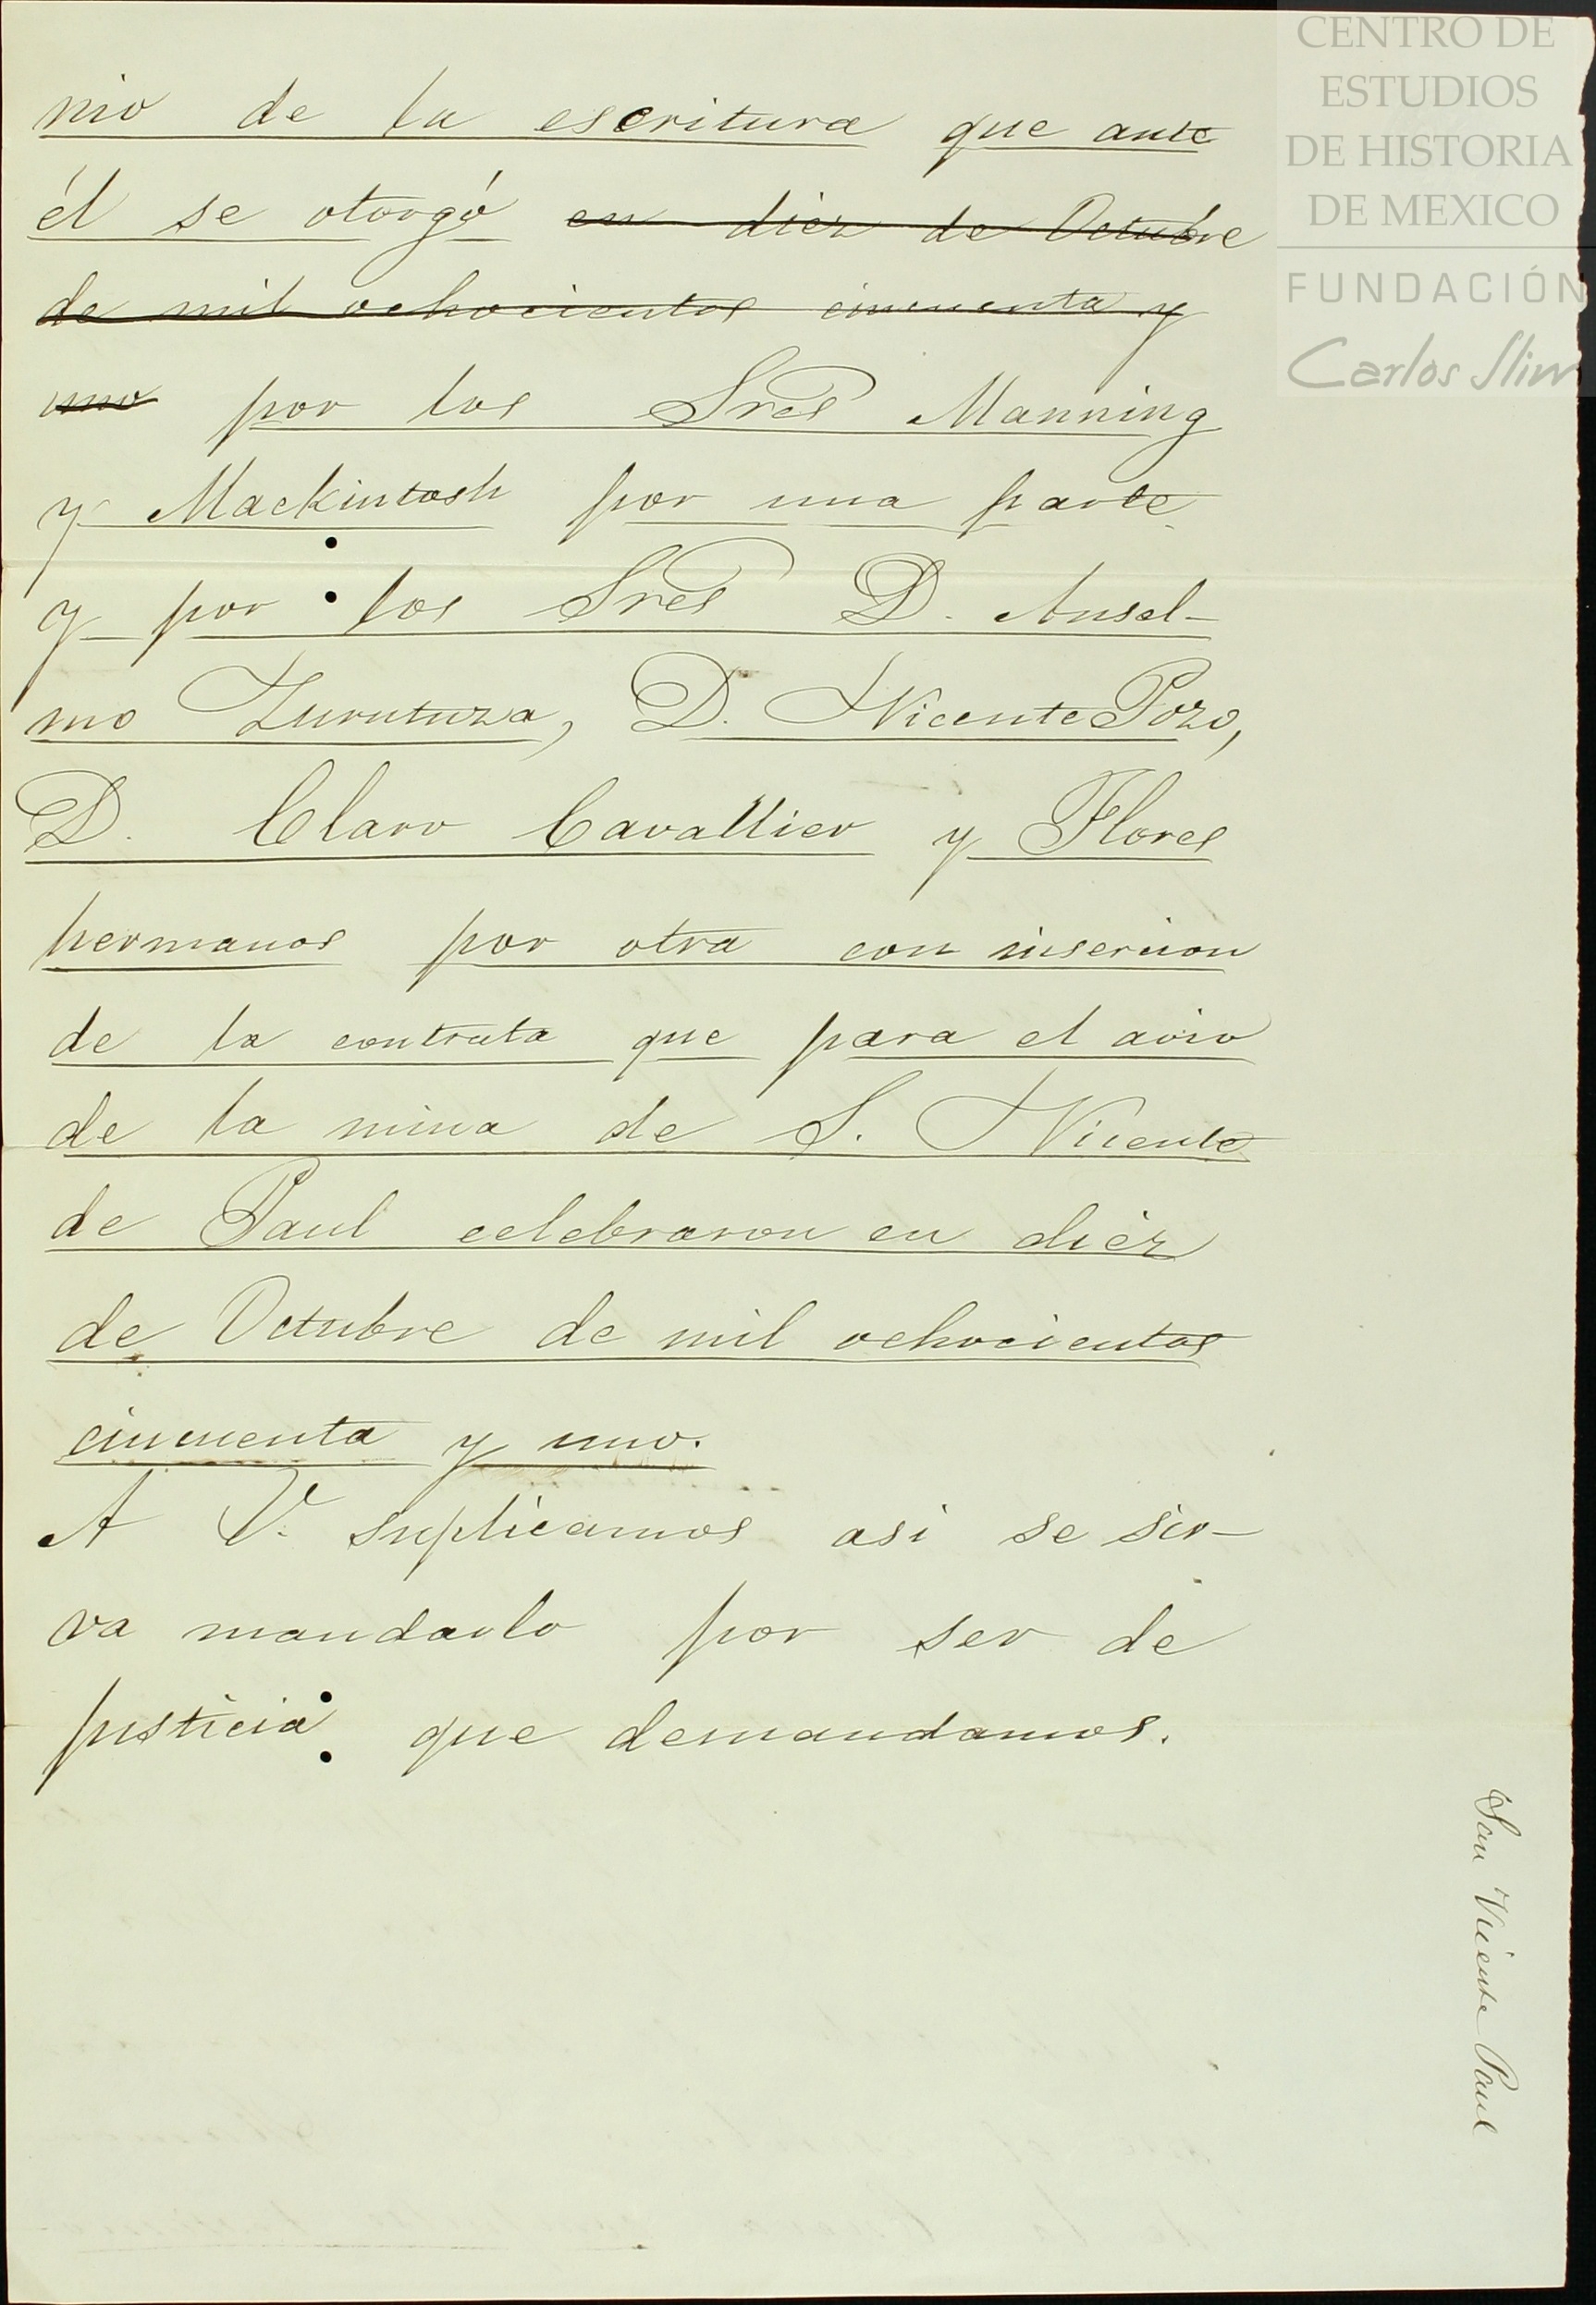 nio de la escritura que ante
él se otorgó en diez de Octubre
de mil ochocientos cincuenta y
uno por los Sres Manning
y Mackintosh por una parte
y por los Sres D. Ansel-
mo Zurutuza, D. Vicente Pozo,
D. Claro Cavallier y Flores
hermanos por otra con insercion
de la contrata que para el avio
de la mina de S. Vicente
de Paul celebraron en diez
de Octubre de mil ochocientos
cincuenta y uno.
A V. suplicamos asi se sir-
va mandarlo por ser de
justicia que demandamos.
San Vicente Paul
CENTRO DE
ESTUDIOS
DE HISTORIA
DE MEXICO
FUNDACIÓN
Carlos Slim